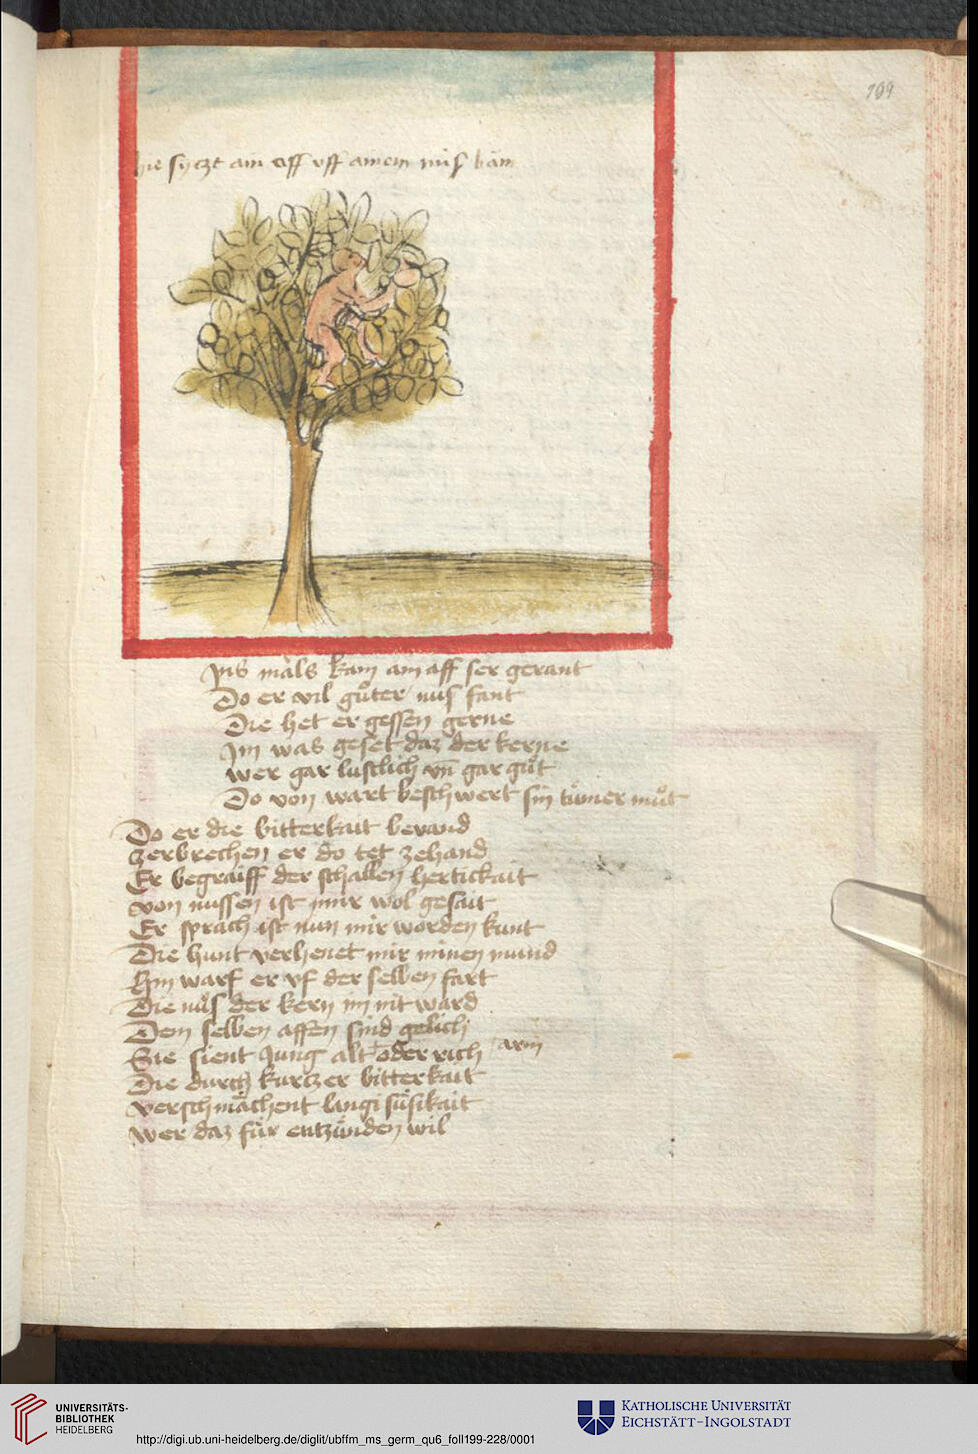 109
hie syczt ain aff vff ainem nuſs bám
Ins máls kam ain aff ser gerant
Do er vil guͦter nuſs fant
Die het er gessen gerne
Im was geseit daz der kerne
wer gar lustlich vn̄ gar guͦt
Do von wart beschwert sin tumer muͦt
Do er die bitterkait bevand
zerbrechen er do tet zehand
Er begraiff der schallen hertickait
von nussen ist mir wol gesait
Er sprach ist nun mir worden kunt
Die hunt verhenet mir minen mund
Hin warf er vf der selben fart
Die nuͦſs der kern im nit ward
Dem selben affen sind gelich
Sie sient Jung alt oder rich / arm
Die durch kurczer bitterkait
verschmáchent langi suͤsikait
wer daz fúr entzúnden wil
UNIVERSITÄTS-
BIBLIOTHEK
HEIDELBERG
http://digi.ub.uni-heidelberg.de/diglit/ubffm_ms_germ_qu6_foll199-228/0001
KATHOLISCHE UNIVERSITÄT
EICHSTÄTT-INGOLSTADT